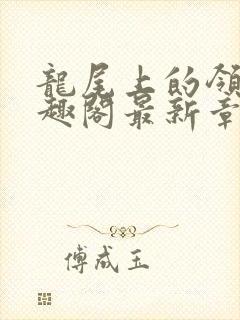 龍尾上的領
趣閣最新章
傅成玉